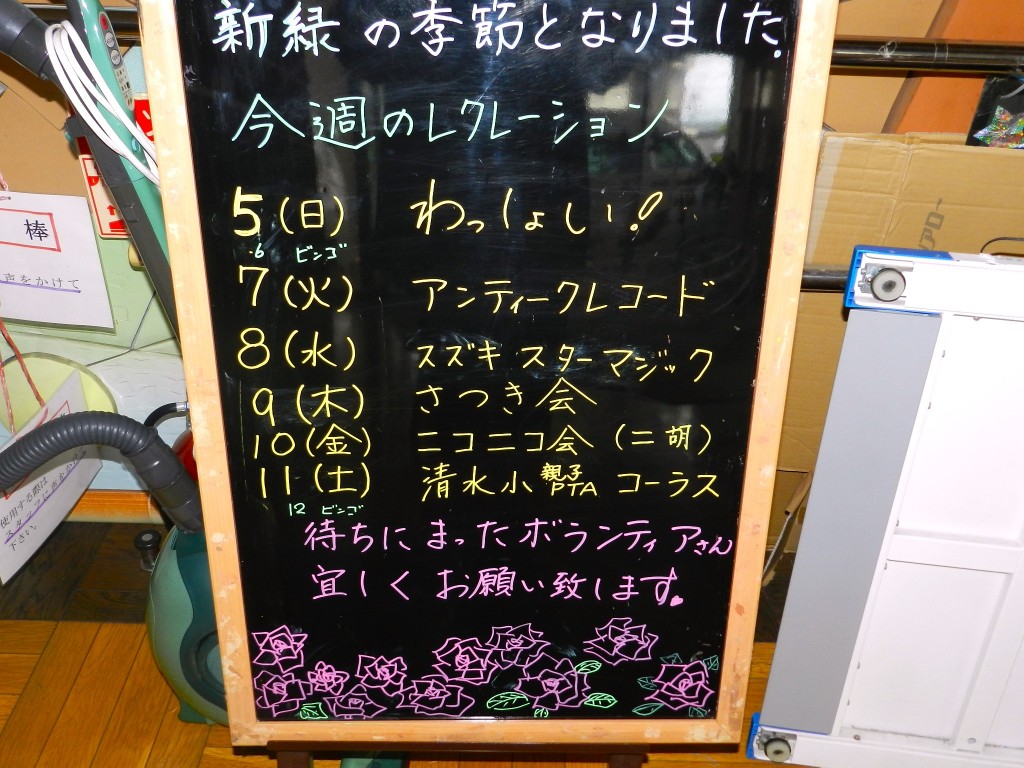 新緑の季節となりました。
今週のレクレーション
5(日) わっしょい!
6 ビンゴ
7(火) アンティークレコード
8(水) スズキ スターマジック
9(木) さつき会
10(金) ニコニコ会(二胡)
11(土) 清水小 親子PTA コーラス
12 ビンゴ
待ちにまったボランティアさん
宜しくお願い致します。
棒
声をかけて
使用する際は
スタッフに声をかけ
下さい。